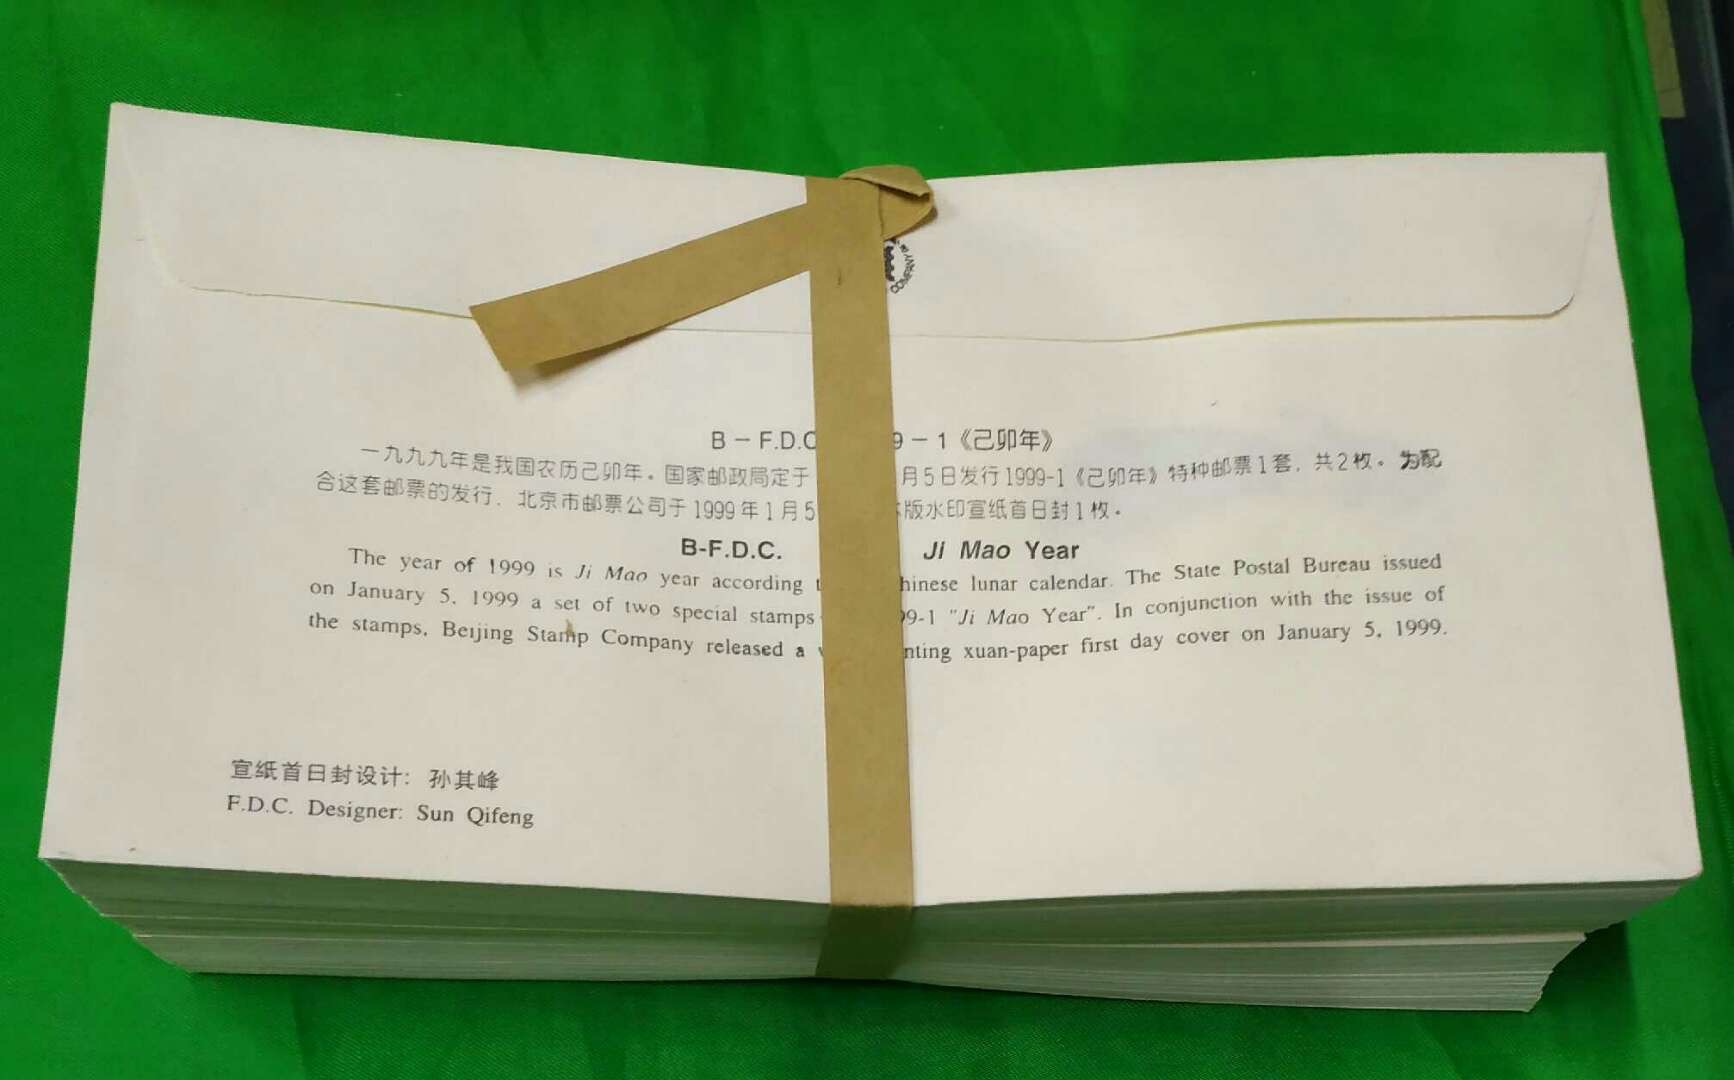 COMPANY
B－F.D.C 9－1《己卯年》
一九九九年是我国农历己卯年。国家邮政局定于 月5日发行1999-1《己卯年》特种邮票1套，共2枚。为配
合这套邮票的发行．北京市邮票公司于1999年1月5 版水印宣纸首日封1枚。
B-F.D.C. Ji Mao Year
The year of 1999 is Ji Mao year according hinese lunar calendar. The State Postal Bureau issued
on January 5, 1999 a set of two special stamps 99-1 "Ji Mao Year". In conjunction with the issue of
the stamps, Beijing Stamp Company released a nting xuan-paper first day cover on January 5, 1999.
宣纸首日封设计：孙其峰
F.D.C. Designer: Sun Qifeng